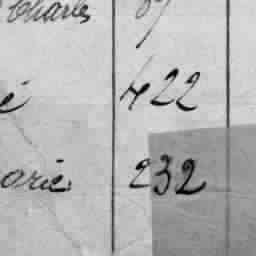 Charles
é 422
orie 232